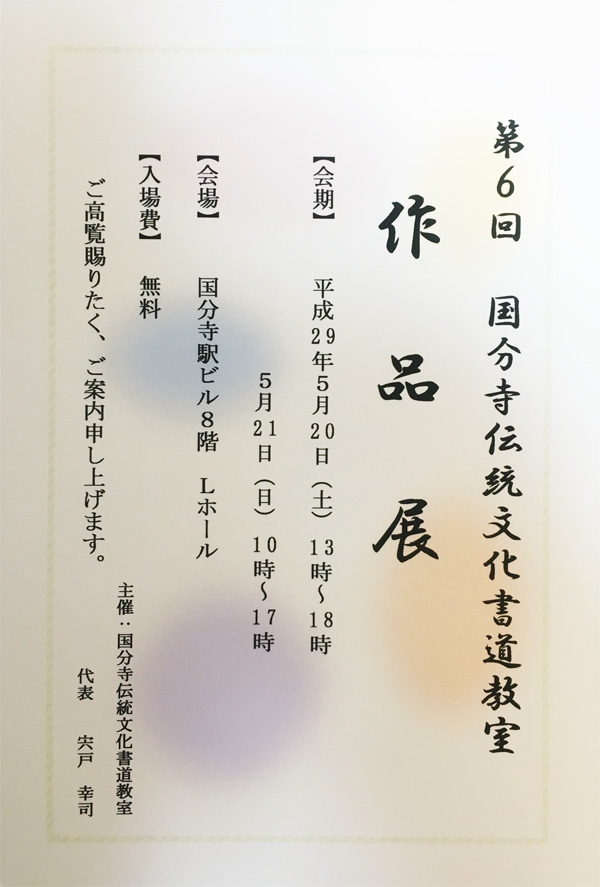 第6回 国分寺伝統文化書道教室
作品展
【会期】 平成29年5月20日(土) 13時~18時
5月21日(日) 10時~17時
【会場】 国分寺駅ビル8階 Lホール
【入場費】 無料
ご高覧賜りたく、ご案内申し上げます。
主催:国分寺伝統文化書道教室
代表 宍戸 幸司